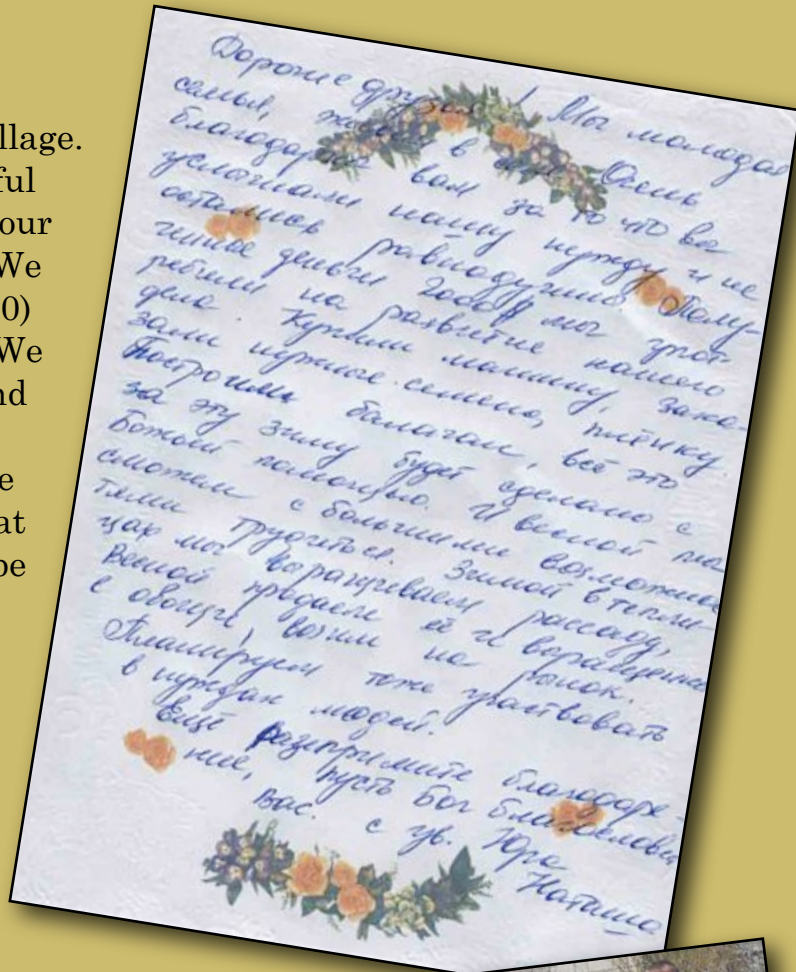 llage.
ful
our
We
0)
We
nd
e
at
be
Дорогие друзья! Мы молодая
семья, живём в Очень
благодарны вам за то что вы
услышали нашу нужду и не
остались равнодушны. Полу-
ченые деньги 2000$ мы упот
ребили на развитие нашего
дела. Купили машину, зака-
зали нужное семена, плёнку
Построили балаган, всё это
за эту зиму будет сделано с
Божьей помощью. И весной мы
сможем с большими возможнос
тями трудиться. Зимой в тепли-
цах мы выращиваем рассаду,
Весной продаем её и выращенн
е овощи возим на рынок.
Планируем тоже участвовать
в нуждах людей.
Ещё раз примите благодаре-
ние, пусть Бог благословит
вас. с ув. Юра
Наташа